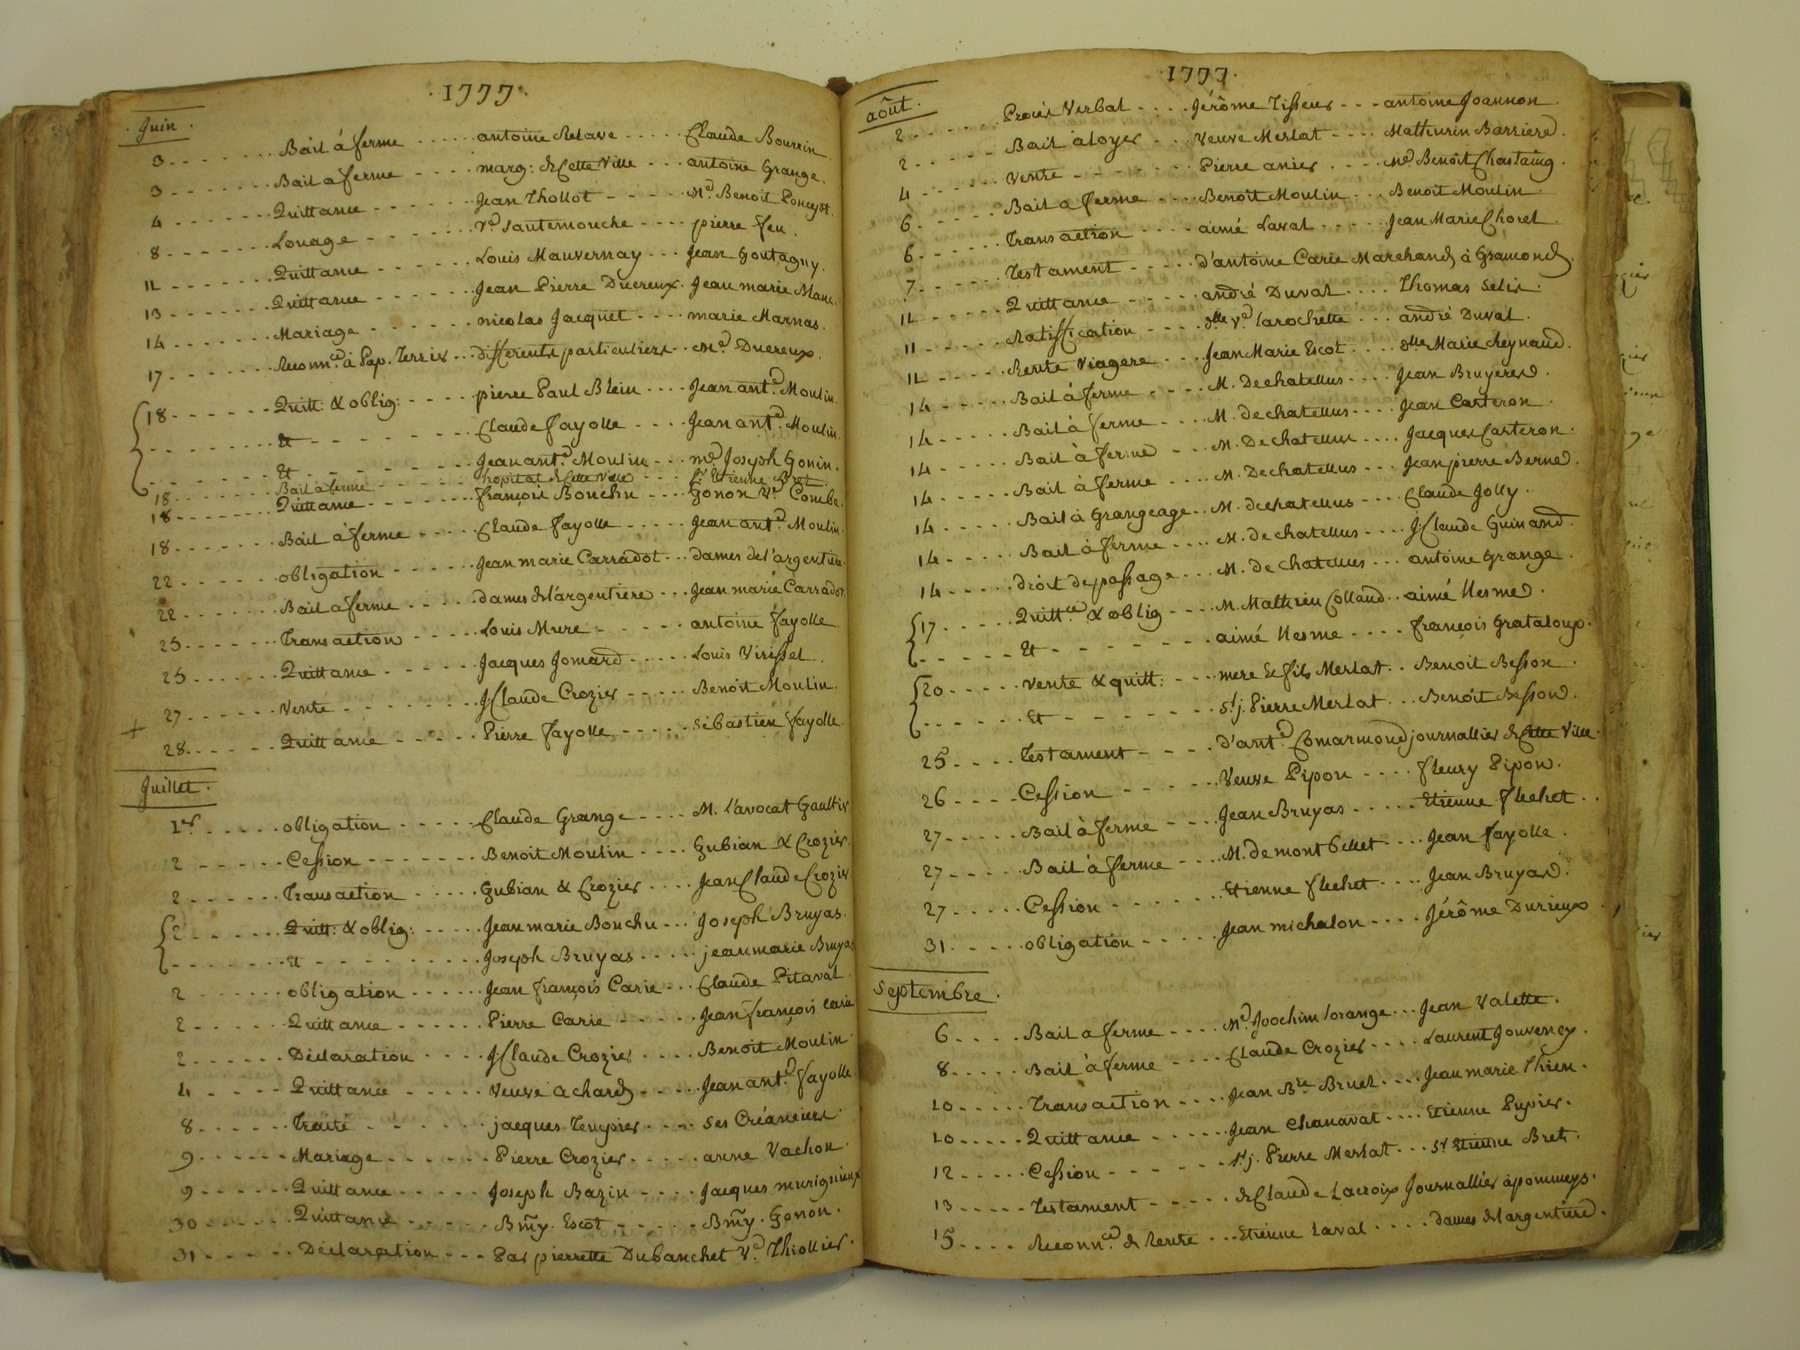 1777.
Juin.
3 Bail à ferme antoine Relave Claude Bourrin
3 Bail a ferme marg: de Cette Ville antoine Grange.
4 Quittance Jean Thollot Md. Benoit Poncet
8 Louage Ve Santemouche pierre feu.
11 Quittance Louis Mauvernay Jean Goutagny.
13 Quittance Jean Pierre Ducreux Jean marie
14 Mariage nicolas Jacquet marie Marnas.
17 Reconnce. à Pap. Terrier differents particuliers Md. Ducreux.
18 Quitt: & oblig: pierre Paul Blein Jean antd. Moulin
Et Claude fayolle Jean antd. Moulin.
Et Jean antd. Moulin md Joseph Gonin.
18 Bail a ferme hopital de Cette Ville Sr. Etienne Bret
18 Quittance françois Bonchu Gonon Ve Combe
18 Bail à ferme Claude fayolle Jean antd. Moulin.
22 obligation Jean marie Carradot dames de l'argentiere
22 Bail a ferme dames de l'argentiere Jean marie Carradot
25 Transaction Louis Mure antoine fayolle
25 Quittance Jacques Jomard Louis Virissel.
27 Vente J Claude Crozier Benoit Moulin.
+ 28 Quittance Pierre fayolle Sébastien fayolle
Juillet.
1er obligation Claude Grange M. l'avocat Gaultier
2 Cession Benoit Moulin Gubian & Crozier.
2 Transaction Gubian & Crozier Jean Claude Crozier
2 Quitt: & oblig: Jean marie Bonchu Joseph Bruyas.
Et Joseph Bruyas jean marie Bruyas
2 obligation Jean françois Carie Claude Pitaval
2 Quittance Pierre Carie Jean françois Carie
2 Déclaration J Claude Crozier Benoit Moulin
4 Quittance Veuve achard Jean antd. fayolle
8 Traité jacques Teuyrier ses Créanciers
9 Mariage Pierre Crozier anne Vachon.
9 Quittance Joseph Bazin Jacques
30 Quittance Bmy. Escot Bmy. Gonon.
31 Déclaration Par pierrette Dubanchet Ve. Thiollier.
1777.
août.
2 Procès Verbal Jérôme Tisseur antoine Joannon
2 Bail à loyer Veuve Merlat Mathurin Barriere.
4 Vente Pierre anier Md Benoit Chastaing.
6 Bail a ferme Benoit Moulin Benoit Moulin.
6 Transaction aimé Laval Jean Marie Choret.
7 Testament d'antoine Carie Marchand à Gramond.
11 Quittance andré Duval Thomas Selix
11 Ratiffication dlle ve. larochette andré Duval.
11 Rente Viagere Jean Marie Escot dlle Marie Reynaud.
14 Bail à ferme M. De chatellus Jean Bruyere.
14 Bail à ferme M. de chatellus Jean Carteron.
14 Bail à ferme M. De chatellus Jacques Carteron.
14 Bail à ferme M. De chatellus Jean pierre Berne.
14 Bail à Grangeage M. de chatellus Claude Jolly.
14 Bail à ferme M. de chatellus J. Claude Guinand.
14 droit de passage M. de chatellus antoine Grange.
17 Quittce. & oblig M. Mathieu Collaud aimé Nesme.
Et aimé Nesme françois Grataloup.
20 Vente & quitt: mere & fils Merlat Benoit Besson.
Et st. j. Pierre Merlat Benoit Besson.
25 Testament d'antd. Comarmond journallier de Cette Ville.
26 Cession Veuve Pipon fleury Pipon.
27 Bail à ferme Jean Bruyas Etienne flechet
27 Bail à ferme M. de montbellet Jean fayolle.
27 Cession Etienne flechet Jean Bruyas.
31 obligation Jean michalon Jérôme Durieux
Septembre.
6 Bail a ferme Md. Joachim lorange Jean Valette.
8 Bail à ferme Claude Crozier Laurent Jouvency.
10 Transaction Jean Bte Bruel Jean marie Thien.
10 Quittance Jean Chanaval Etienne Pupier.
12 Cession st. j. Pierre Merlat sr Etienne Bret.
13 Testament de Claude Lacroix Journallier à pommeys.
15 Reconnce. de Rente Etienne Laval dames de l'argentiere.